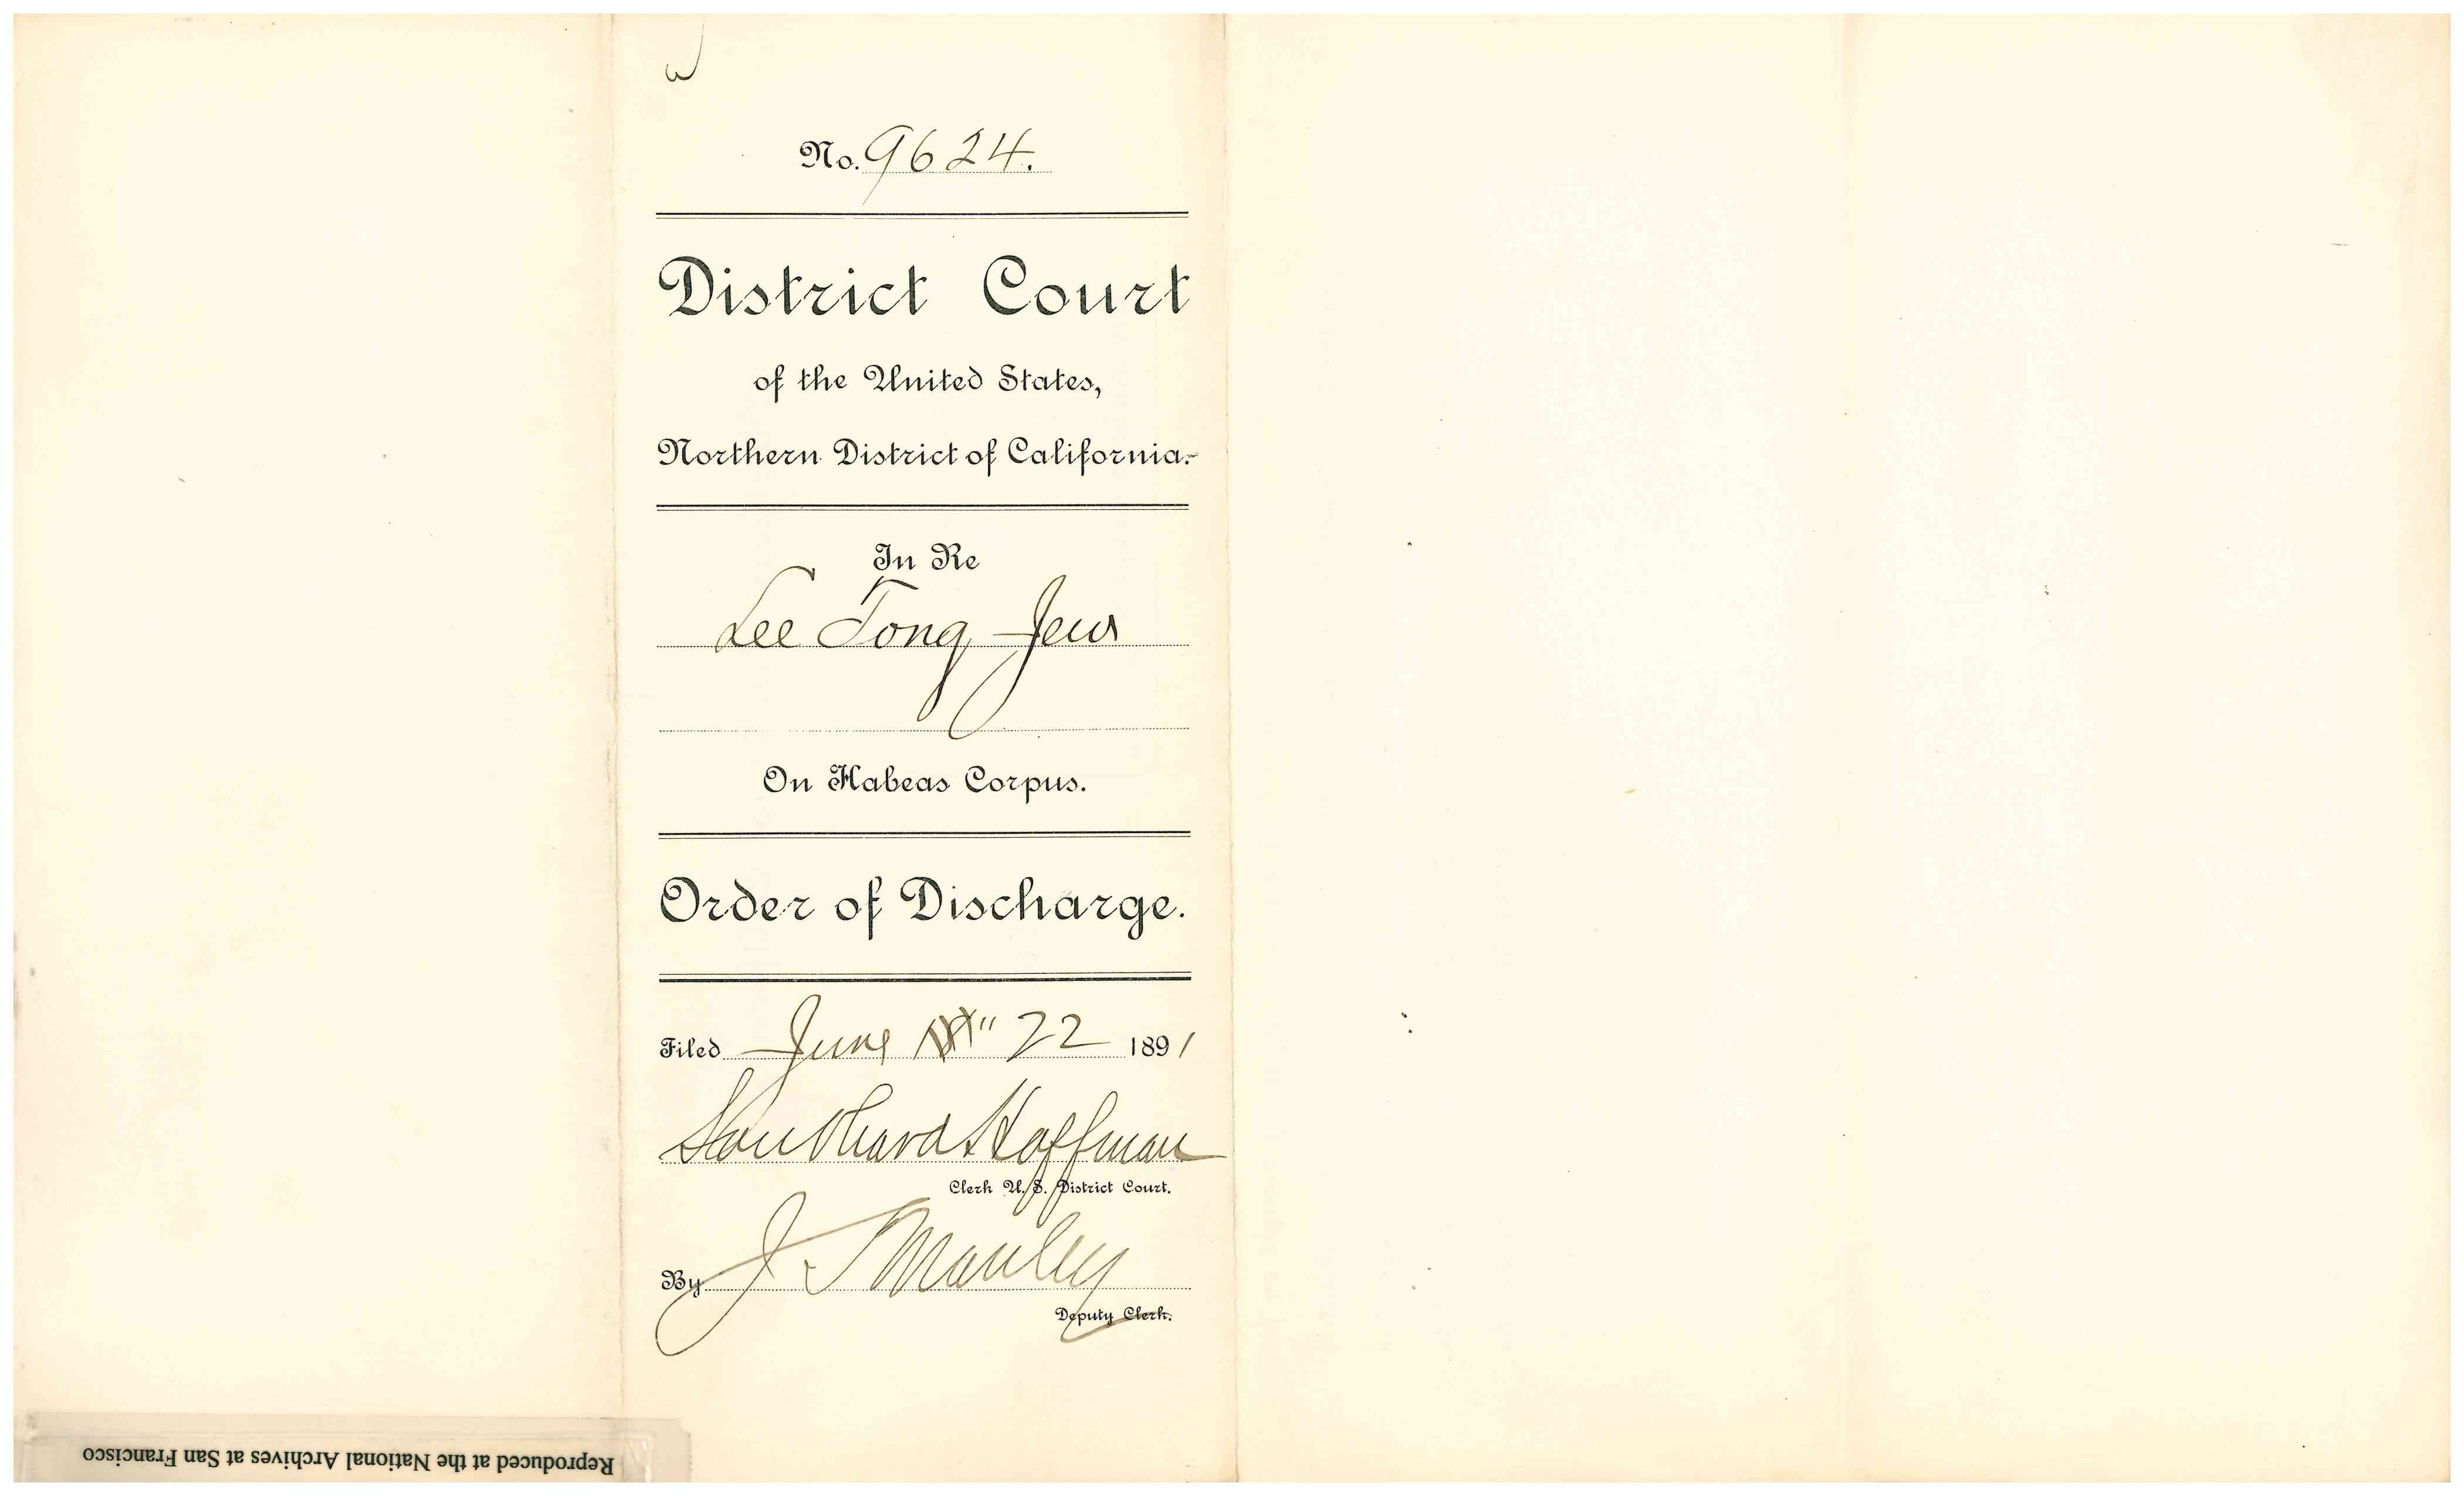 No. 9624.
District Court
of the United States,
Northern District of California.
In Re
Lee Tong Jew
On Habeas Corpus.
Order of Discharge.
Filed June 22 1891
Southard Hoffman
Clerk U. S. District Court.
By J S Manley
Deputy Clerk.
Reproduced at the National Archives at San Francisco